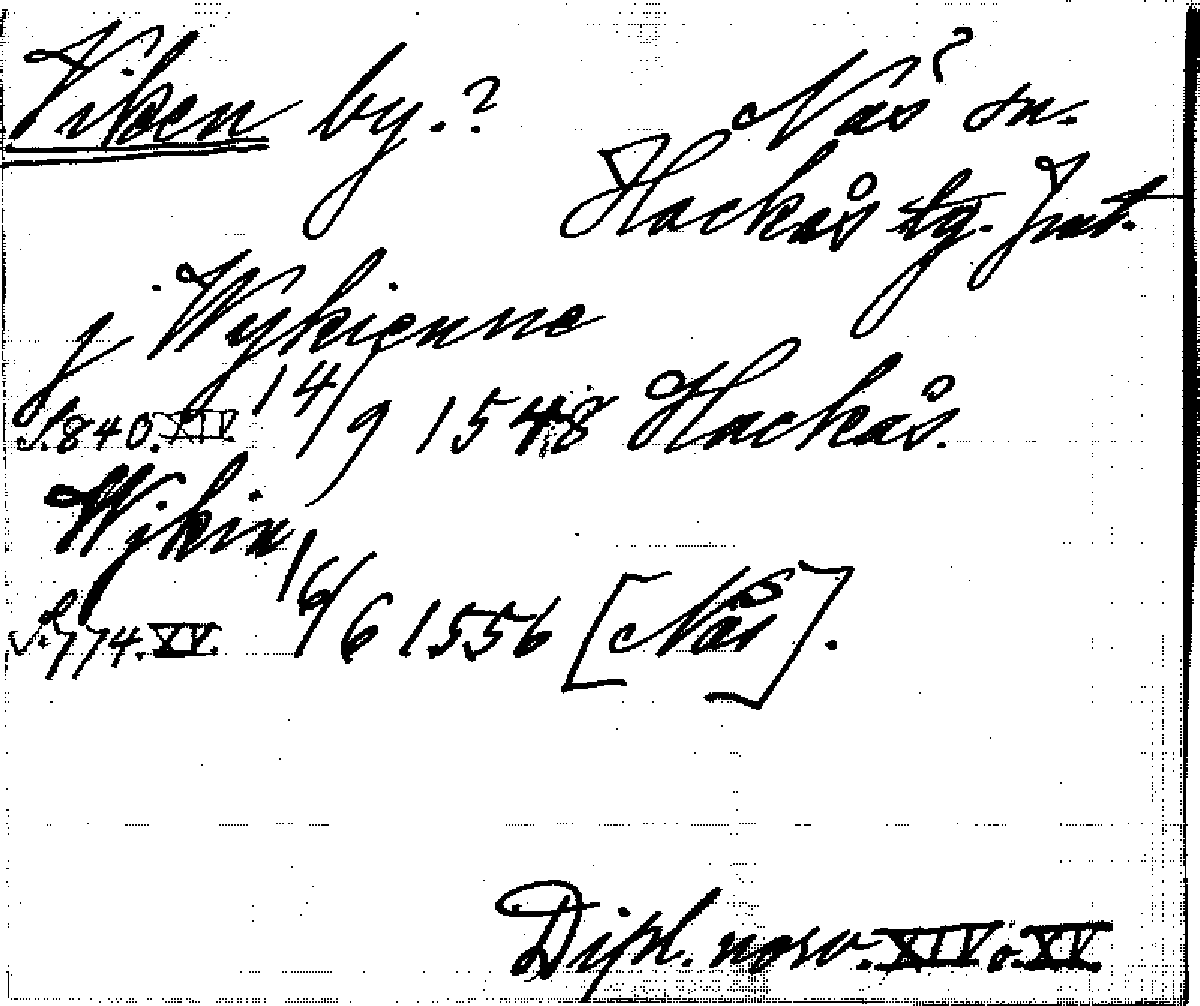 Viken by.? Näs? sn.
Hackås tg. Jmt.
j Wykienne
S. 840. XIV. 14/9 1548 Hackås.
Wikin
S. 774. XV. 16/6 1556 [Näs].
Dipl. norv. XIV o. XV.